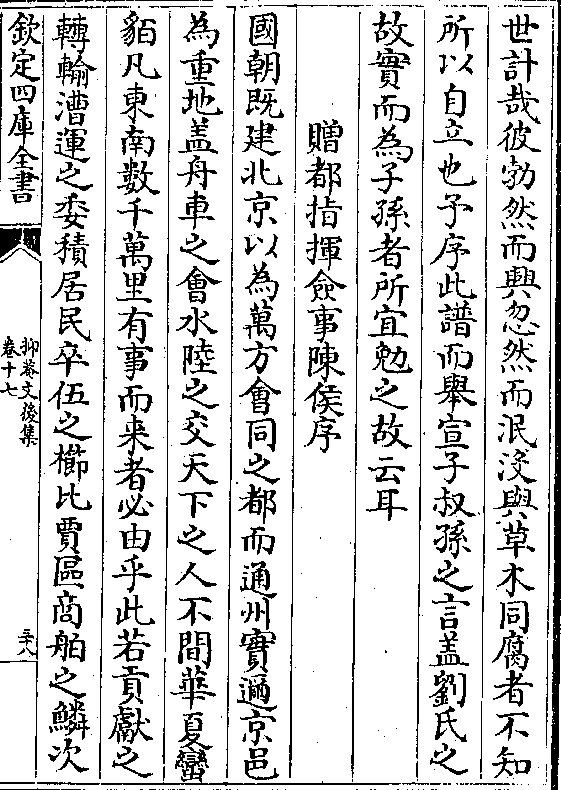 世計哉彼勃然而興忽然而泯沒與草木同腐者不知
所以自立也予序此譜而舉宣子叔孫之言蓋劉氏之
故實而為子孫者所宜勉之故云耳
贈都指揮僉事陳侯序
國朝既建北京以為萬方會同之都而通州實邇京邑
為重地盖舟車之會水陸之交天下之人不間華夏蠻
貊凡東南數千萬里有事而来者必由乎此若貢獻之
轉輸漕運之委積居民卒伍之櫛比賈區商舶之鱗次
欽定四庫全書
抑菴文後集
卷十七
三十八